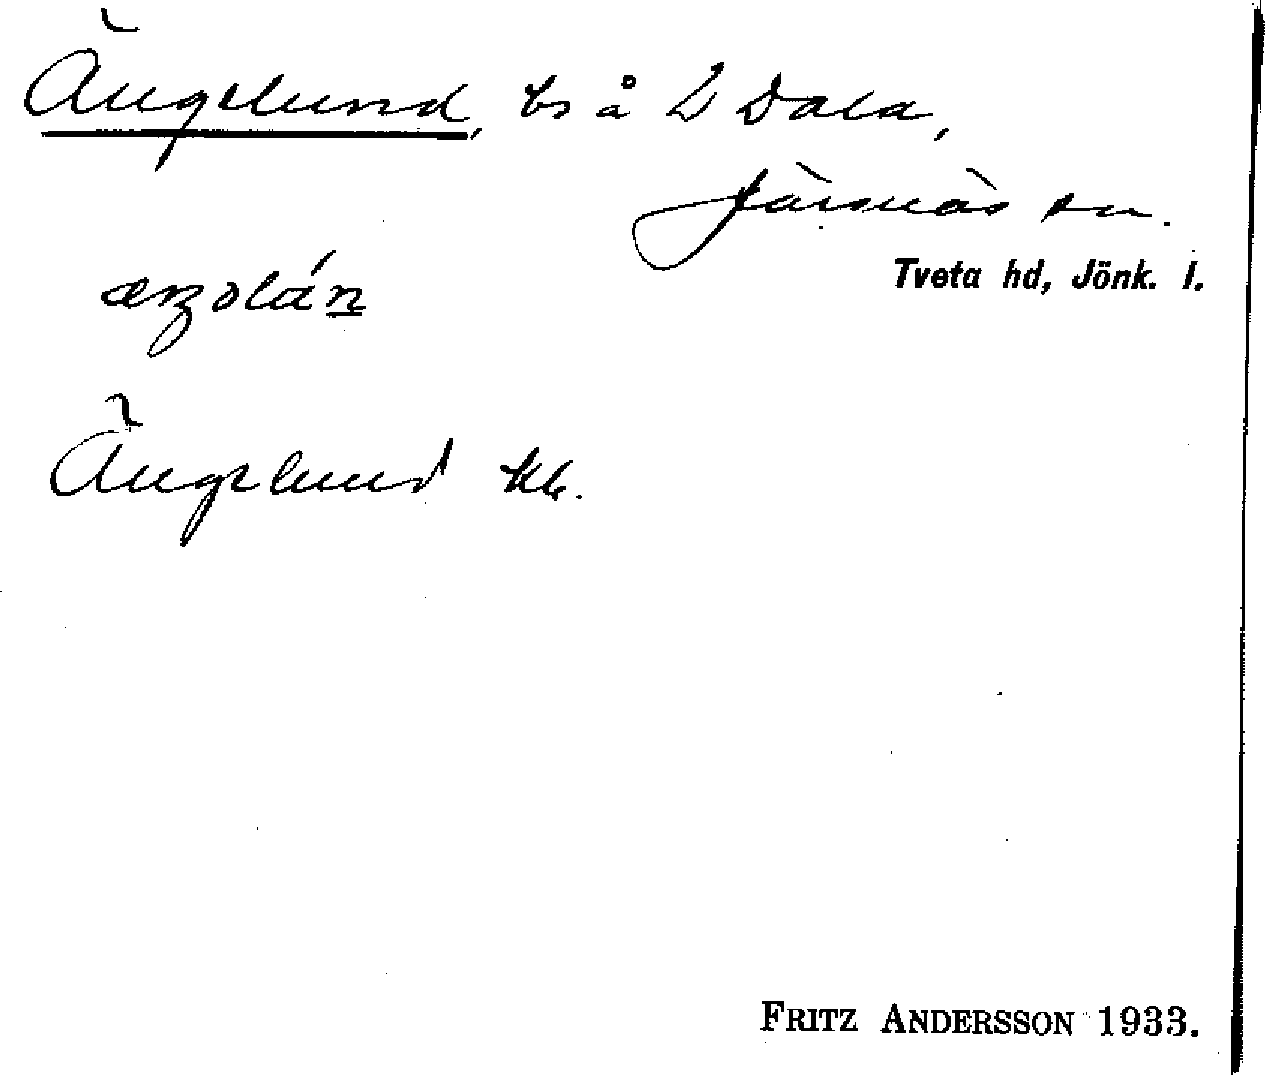 Ängslund, bs å L Dala,
Järsnäs sn.
Tveta hd, Jönk. l.
Ängslund kb.
FRITZ ANDERSSON 1933.